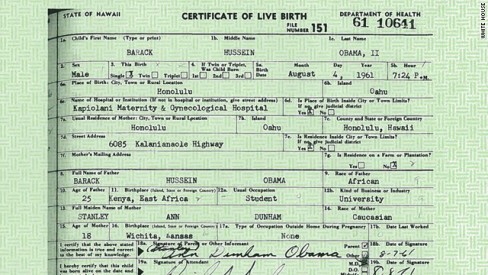 STATE OF HAWAII CERTIFICATE OF LIVE BIRTH DEPARTMENT OF HEALTH
FILE NUMBER 151 61 10641
1a. Child's First Name (Type or print) 1b. Middle Name 1c. Last Name
BARACK HUSSEIN OBAMA, II
2. Sex 3. This Birth 4. If Twin or Triplet, Was Child Born 5a. Birth Date Month Day Year 5b. Hour
Male Single Twin Triplet 1st 2nd 3rd August 4, 1961 7:24 P.M.
6a. Place of Birth: City, Town or Rural Location 6b. Island
Honolulu Oahu
6c. Name of Hospital or Institution (If not in hospital or institution, give street address) 6d. Is Place of Birth Inside City or Town Limits? If no, give judicial district
Kapiolani Maternity & Gynecological Hospital Yes No
7a. Usual Residence of Mother: City, Town or Rural Location 7b. Island 7c. County and State or Foreign Country
Honolulu Oahu Honolulu, Hawaii
7d. Street Address 7e. Is Residence Inside City or Town Limits? If no, give judicial district
6085 Kalanianaole Highway Yes No
7f. Mother's Mailing Address 7g. Is Residence on a Farm or Plantation?
Yes No
8. Full Name of Father 9. Race of Father
BARACK HUSSEIN OBAMA African
10. Age of Father 11. Birthplace (Island, State or Foreign Country) 12a. Usual Occupation 12b. Kind of Business or Industry
25 Kenya, East Africa Student University
13. Full Maiden Name of Mother 14. Race of Mother
STANLEY ANN DUNHAM Caucasian
15. Age of Mother 16. Birthplace (Island, State or Foreign Country) 17a. Type of Occupation Outside Home During Pregnancy 17b. Date Last Worked
18 Wichita, Kansas None
I certify that the above stated information is true and correct to the best of my knowledge. 18a. Signature of Parent or Other Informant Parent Other 18b. Date of Signature
Ann Dunham Obama 8-7-61
I hereby certify that this child was born alive on the date and 19a. Signature of Attendant M.D. 19b. Date of Signature
WHITE HOUSE